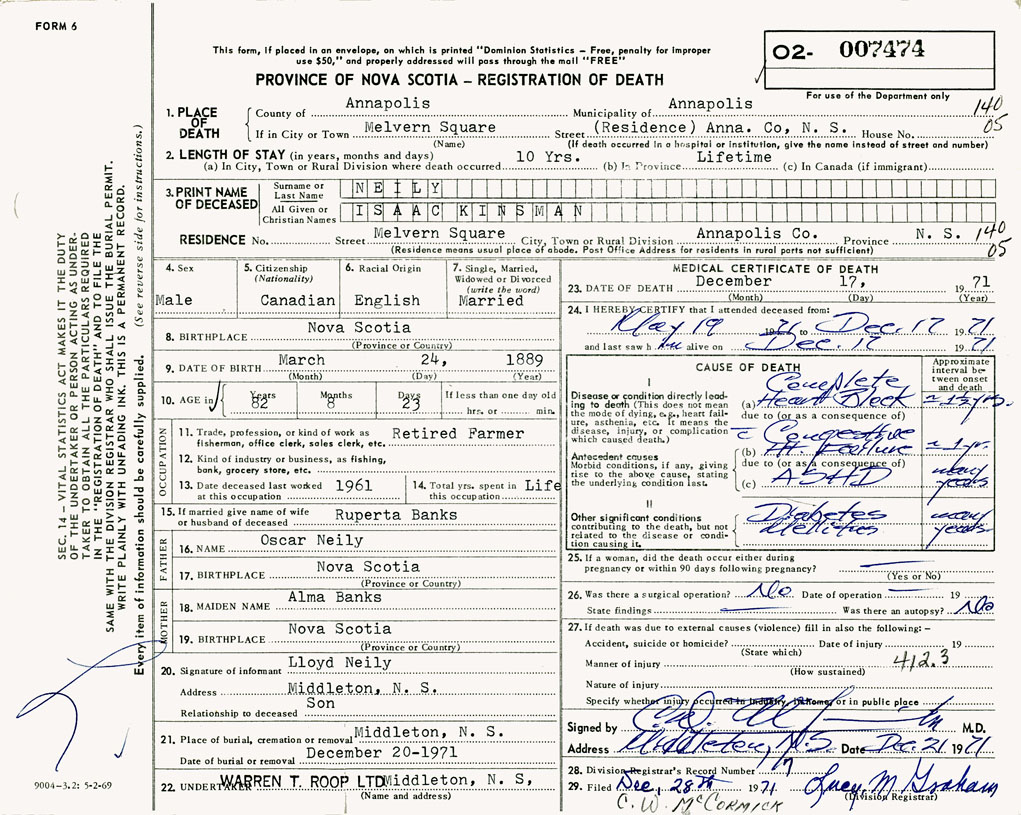 FORM 6
This form, if placed in an envelope, on which is printed "Dominion Statistics – Free, penalty for improper
use $50," and properly addressed will pass through the mail "FREE"
PROVINCE OF NOVA SCOTIA – REGISTRATION OF DEATH
02- 007474
For use of the Department only
1. PLACE OF DEATH
County of Annapolis Municipality of Annapolis 140
If in City or Town Melvern Square Street (Residence) Anna. Co, N. S. House No. 05
(Name) (If death occurred in a hospital or institution, give the name instead of street and number)
2. LENGTH OF STAY (in years, months and days) 10 Yrs. Lifetime
(a) In City, Town or Rural Division where death occurred (b) In Province (c) In Canada (if immigrant)
3. PRINT NAME OF DECEASED
Surname or Last Name NEILY
All Given or Christian Names ISAAC KINSMAN
RESIDENCE No. Street Melvern Square City, Town or Rural Division Annapolis Co. Province N. S. 140
(Residence means usual place of abode. Post Office Address for residents in rural ports not sufficient) 05
4. Sex
Male
5. Citizenship
(Nationality)
Canadian
6. Racial Origin
English
7. Single, Married,
Widowed or Divorced
(write the word)
Married
8. BIRTHPLACE Nova Scotia
(Province or Country)
9. DATE OF BIRTH March 24, 1889
(Month) (Day) (Year)
10. AGE in Years Months Days If less than one day old
82 8 23 hrs. or min.
OCCUPATION
11. Trade, profession, or kind of work as Retired Farmer
fisherman, office clerk, sales clerk, etc.
12. Kind of industry or business, as fishing,
bank, grocery store, etc.
13. Date deceased last worked 1961
at this occupation
14. Total yrs. spent in Life
this occupation
15. If married give name of wife
or husband of deceased Ruperta Banks
FATHER
16. NAME Oscar Neily
17. BIRTHPLACE Nova Scotia
(Province or Country)
MOTHER
18. MAIDEN NAME Alma Banks
19. BIRTHPLACE Nova Scotia
(Province or Country)
20. Signature of informant Lloyd Neily
Address Middleton, N. S.
Relationship to deceased Son
21. Place of burial, cremation or removal Middleton, N. S.
Date of burial or removal December 20-1971
22. UNDERTAKER WARREN T. ROOP LTD Middleton, N. S,
(Name and address)
MEDICAL CERTIFICATE OF DEATH
23. DATE OF DEATH December 17, 19 71
(Month) (Day) (Year)
24. I HEREBY CERTIFY that I attended deceased from:
May 19 1971 to Dec. 17 1971
and last saw him alive on Dec. 17 1971
CAUSE OF DEATH
Approximate
interval be-
tween onset
and death
I
Disease or condition directly lead-
ing to death (This does not mean
the mode of dying, e.g., heart fail-
ure, asthenia, etc. It means the
disease, injury, or complication
which caused death.)
(a) Complete Heart Block
due to (or as a consequence of)
Antecedent causes
Morbid conditions, if any, giving
rise to the above cause, stating
the underlying condition last.
(b) Congestive Ht. Failure 1 yr.
due to (or as a consequence of)
(c) ASHD many years
II
Other significant conditions
contributing to the death, but not
related to the disease or condi-
tion causing it.
Diabetes Mellitus many years
25. If a woman, did the death occur either during
pregnancy or within 90 days following pregnancy?
(Yes or No)
26. Was there a surgical operation? No Date of operation 19
State findings Was there an autopsy? No
27. If death was due to external causes (violence) fill in also the following: –
Accident, suicide or homicide? Date of injury 19
(State which)
Manner of injury 412.3
(How sustained)
Nature of injury
Specify whether injury occurred in industry, in home, or in public place
Signed by M.D.
Address Middleton, N.S. Date Dec. 21 1971
28. Division Registrar's Record Number 17
29. Filed Dec. 28th 1971 Lucy M Graham
(Division Registrar)
C. W. McCORMICK
SEC. 14 – VITAL STATISTICS ACT MAKES IT THE DUTY
OF THE UNDERTAKER OR PERSON ACTING AS UNDER-
TAKER TO OBTAIN ALL THE PARTICULARS REQUIRED
IN THE "REGISTRATION OF DEATH" AND TO FILE THE
SAME WITH THE DIVISION REGISTRAR WHO SHALL ISSUE THE BURIAL PERMIT.
WRITE PLAINLY WITH UNFADING INK. THIS IS A PERMANENT RECORD.
Every item of information should be carefully supplied. (See reverse side for instructions.)
9004-3.2: 5-2-69